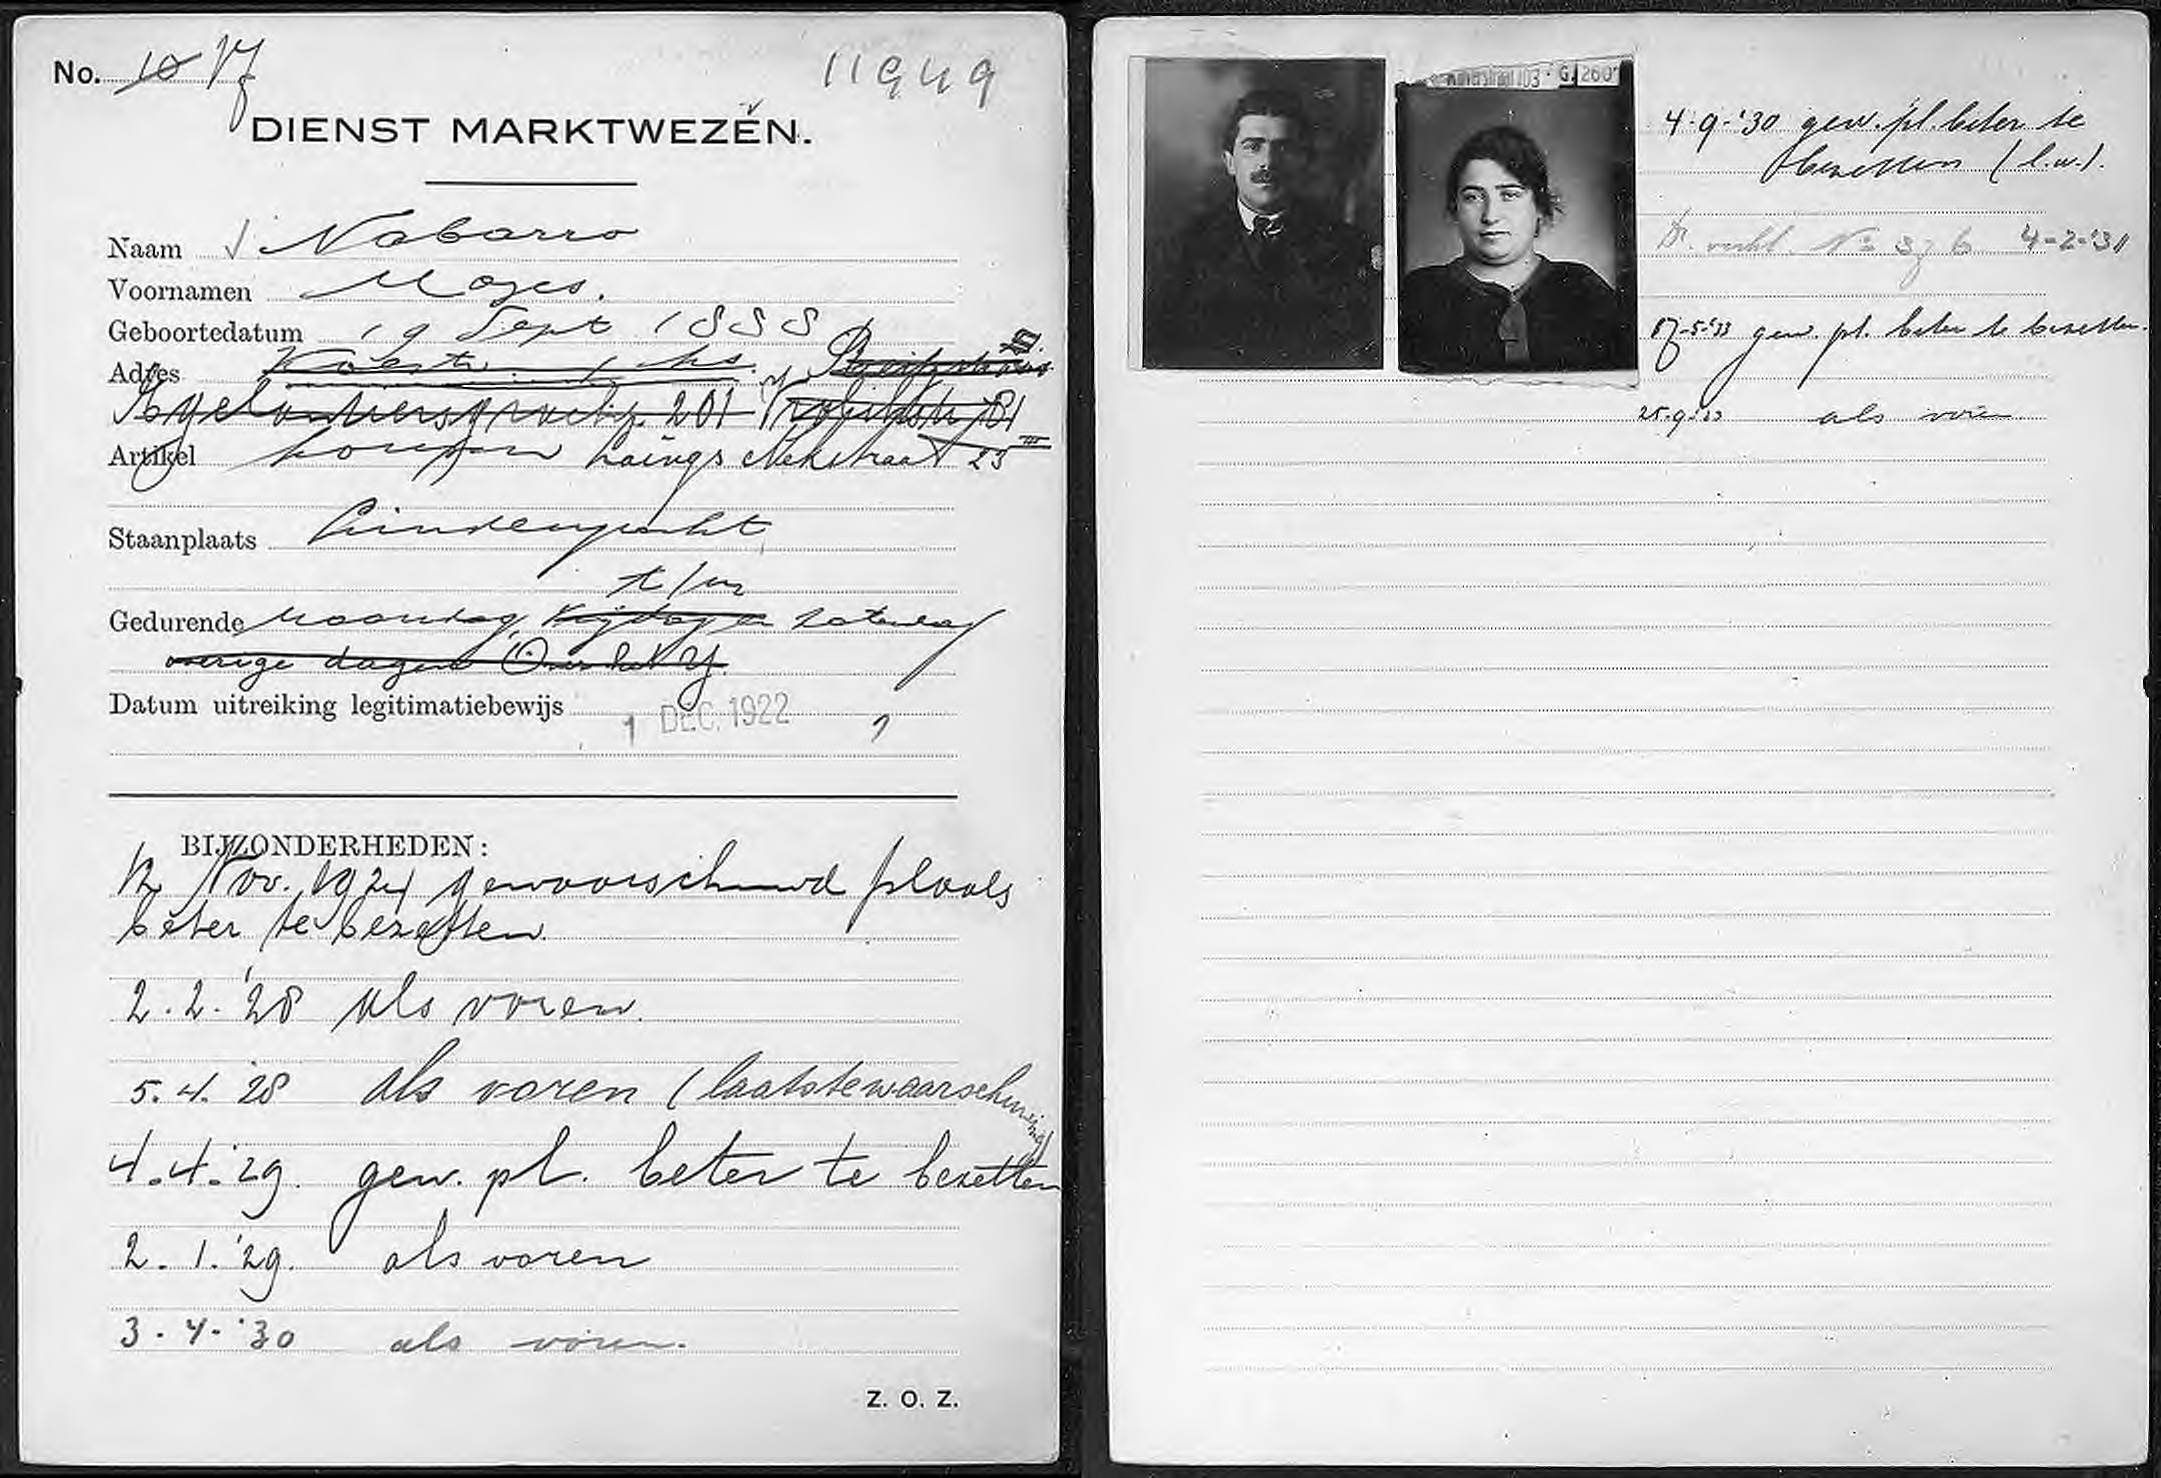 No. 10 17
11949
DIENST MARKTWEZEN.
Naam Nabarro
Voornamen Mozes.
Geboortedatum 19 Sept 1888
Adres hs.
Egelantiersgracht 201
Artikel Haringstr 23 III
Staanplaats Lindengracht
t/m
Gedurende Maandag, Vrijdag en Zaterdag
overige dagen Over het Y.
Datum uitreiking legitimatiebewijs 1 DEC. 1922
BIJZONDERHEDEN:
12 Nov. 1924 gewaarschuwd plaats
beter te bezetten.
2.2.'28 als voren.
5.4.'28 als voren (laatste waarschuwing)
4.4.'29. gew. pl. beter te bezetten
2.1.'29. als voren
3-4-'30 als voren.
Z. O. Z.
G. 260
4-9-'30 gew. pl. beter te
bezetten (l.w.).
No 376 4-2-'31
gew. pl. beter te bezetten.
als voren